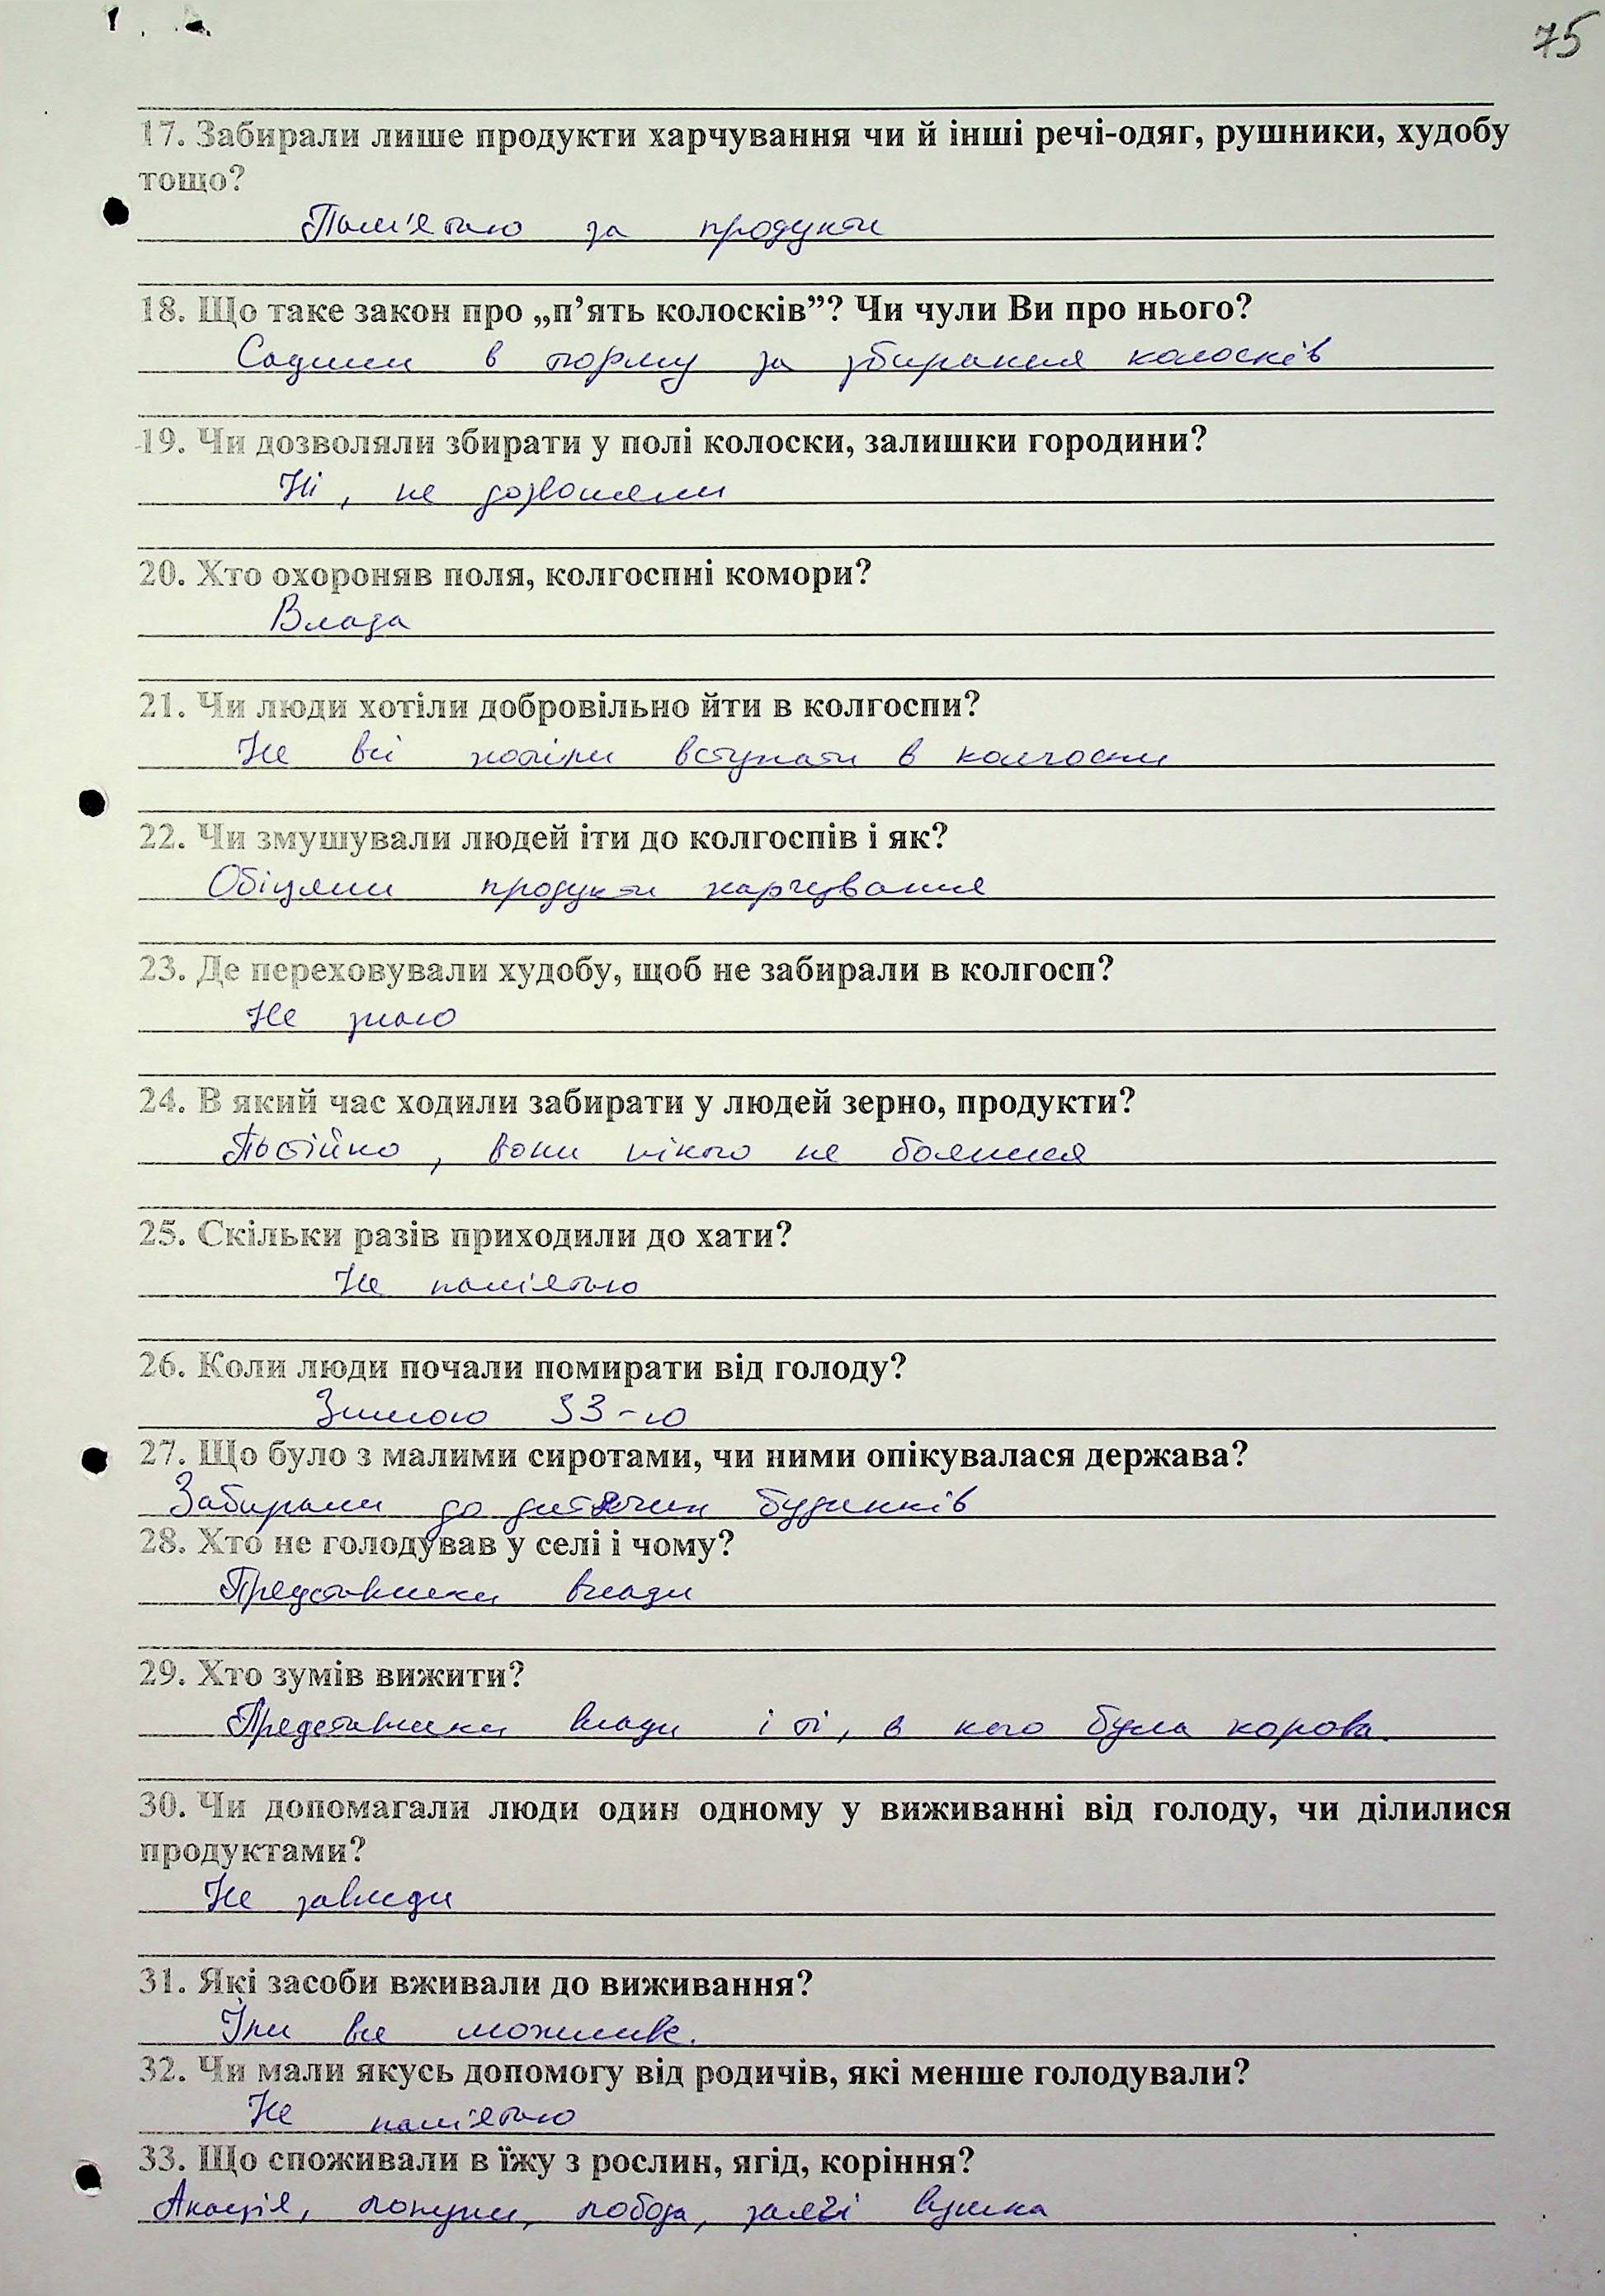 75
17. Забирали лише продукти харчування чи й інші речі-одяг, рушники, худобу
тощо?
Пам'ятаю за продукти
18. Що таке закон про „п’ять колосків”? Чи чули Ви про нього?
Садили в тюрму за збирання колосків
19. Чи дозволяли збирати у полі колоски, залишки городини?
Ні, не дозволяли
20. Хто охороняв поля, колгоспні комори?
Влада
21. Чи люди хотіли добровільно йти в колгоспи?
Не всі хотіли вступати в колгоспи
22. Чи змушували людей іти до колгоспів і як?
Обіцяли продукти харчування
23. Де переховували худобу, щоб не забирали в колгосп?
Не знаю
24. В який час ходили забирати у людей зерно, продукти?
Постійно, вони нікого не боялися
25. Скільки разів приходили до хати?
Не пам'ятаю
26. Коли люди почали помирати від голоду?
Зимою 33-го
27. Що було з малими сиротами, чи ними опікувалася держава?
Забирали до дитячих будинків
28. Хто не голодував у селі і чому?
Представники влади
29. Хто зумів вижити?
Представники влади і ті, в кого була корова.
30. Чи допомагали люди один одному у виживанні від голоду, чи ділилися
продуктами?
Не завжди
31. Які засоби вживали до виживання?
Їли все можливе.
32. Чи мали якусь допомогу від родичів, які менше голодували?
Не пам'ятаю
33. Що споживали в їжу з рослин, ягід, коріння?
Акація, лопухи, лобода, заячі вушка